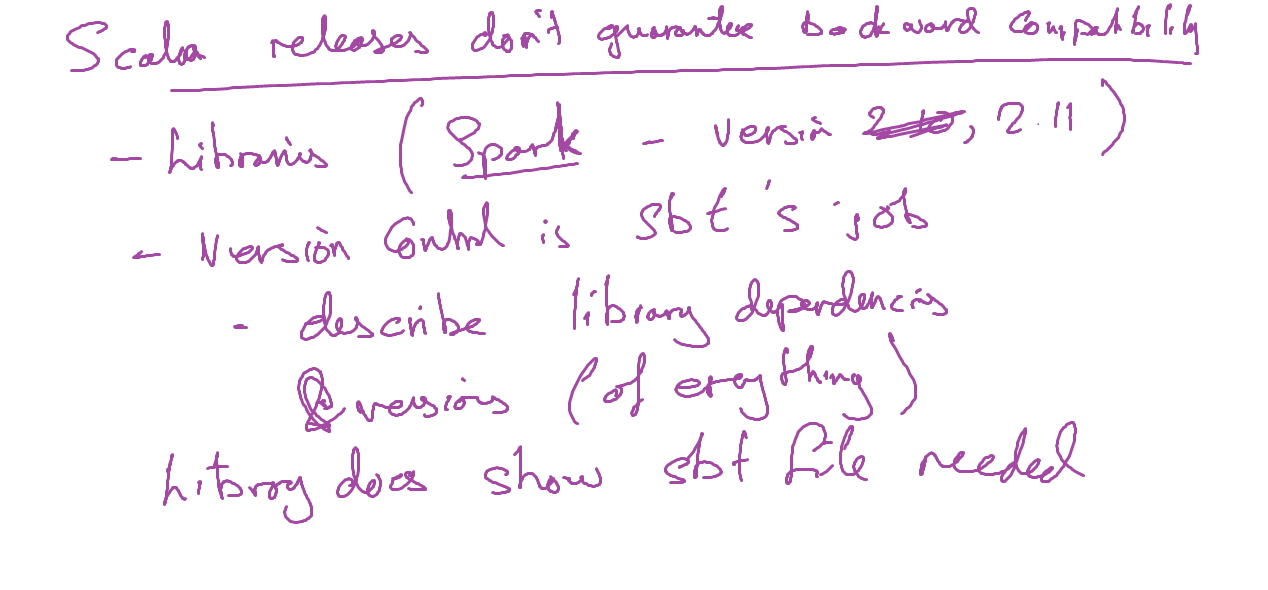 Scala releases don't guarantee backward compatibility
- Libraries (Spark - version 2.10, 2.11)
- Version Control is sbt's job
- describe library dependencies
& versions (of everything)
Library docs show sbt file needed